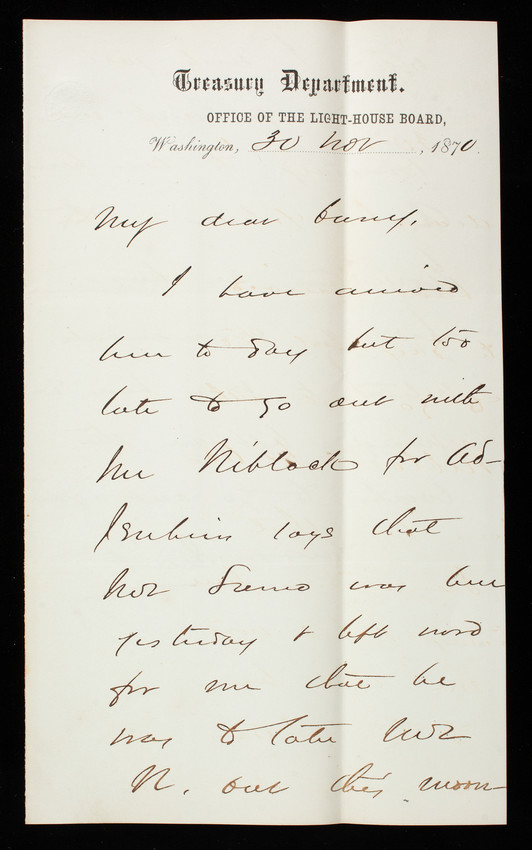 Treasury Department.
OFFICE OF THE LIGHT-HOUSE BOARD,
Washington, 30 Nov, 1870.
My dear Casey,
I have arrived
here to day but too
late to go out with
Mr Niblack for Ad-
Jenkins says that
your friend was here
yesterday & left word
for me that he
was to take Mr
N. out this morn-